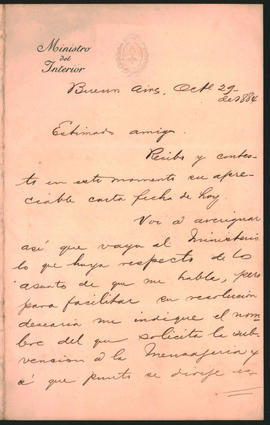 Ministro
del
Interior
Buenos Aires, Octe 29
de 1884
Estimado amigo
Recibo y contes-
to en este momento su apre-
ciable carta fecha de hoy.
Voi á averiguar
así que vaya al Ministerio
lo que haya respecto de lo
asunto de que me habla, pero
para facilitar su resolución
desearia me indique el nom-
bre del que solicita la sub-
vencion á la Mensajeria y
á que punto se dirije es-